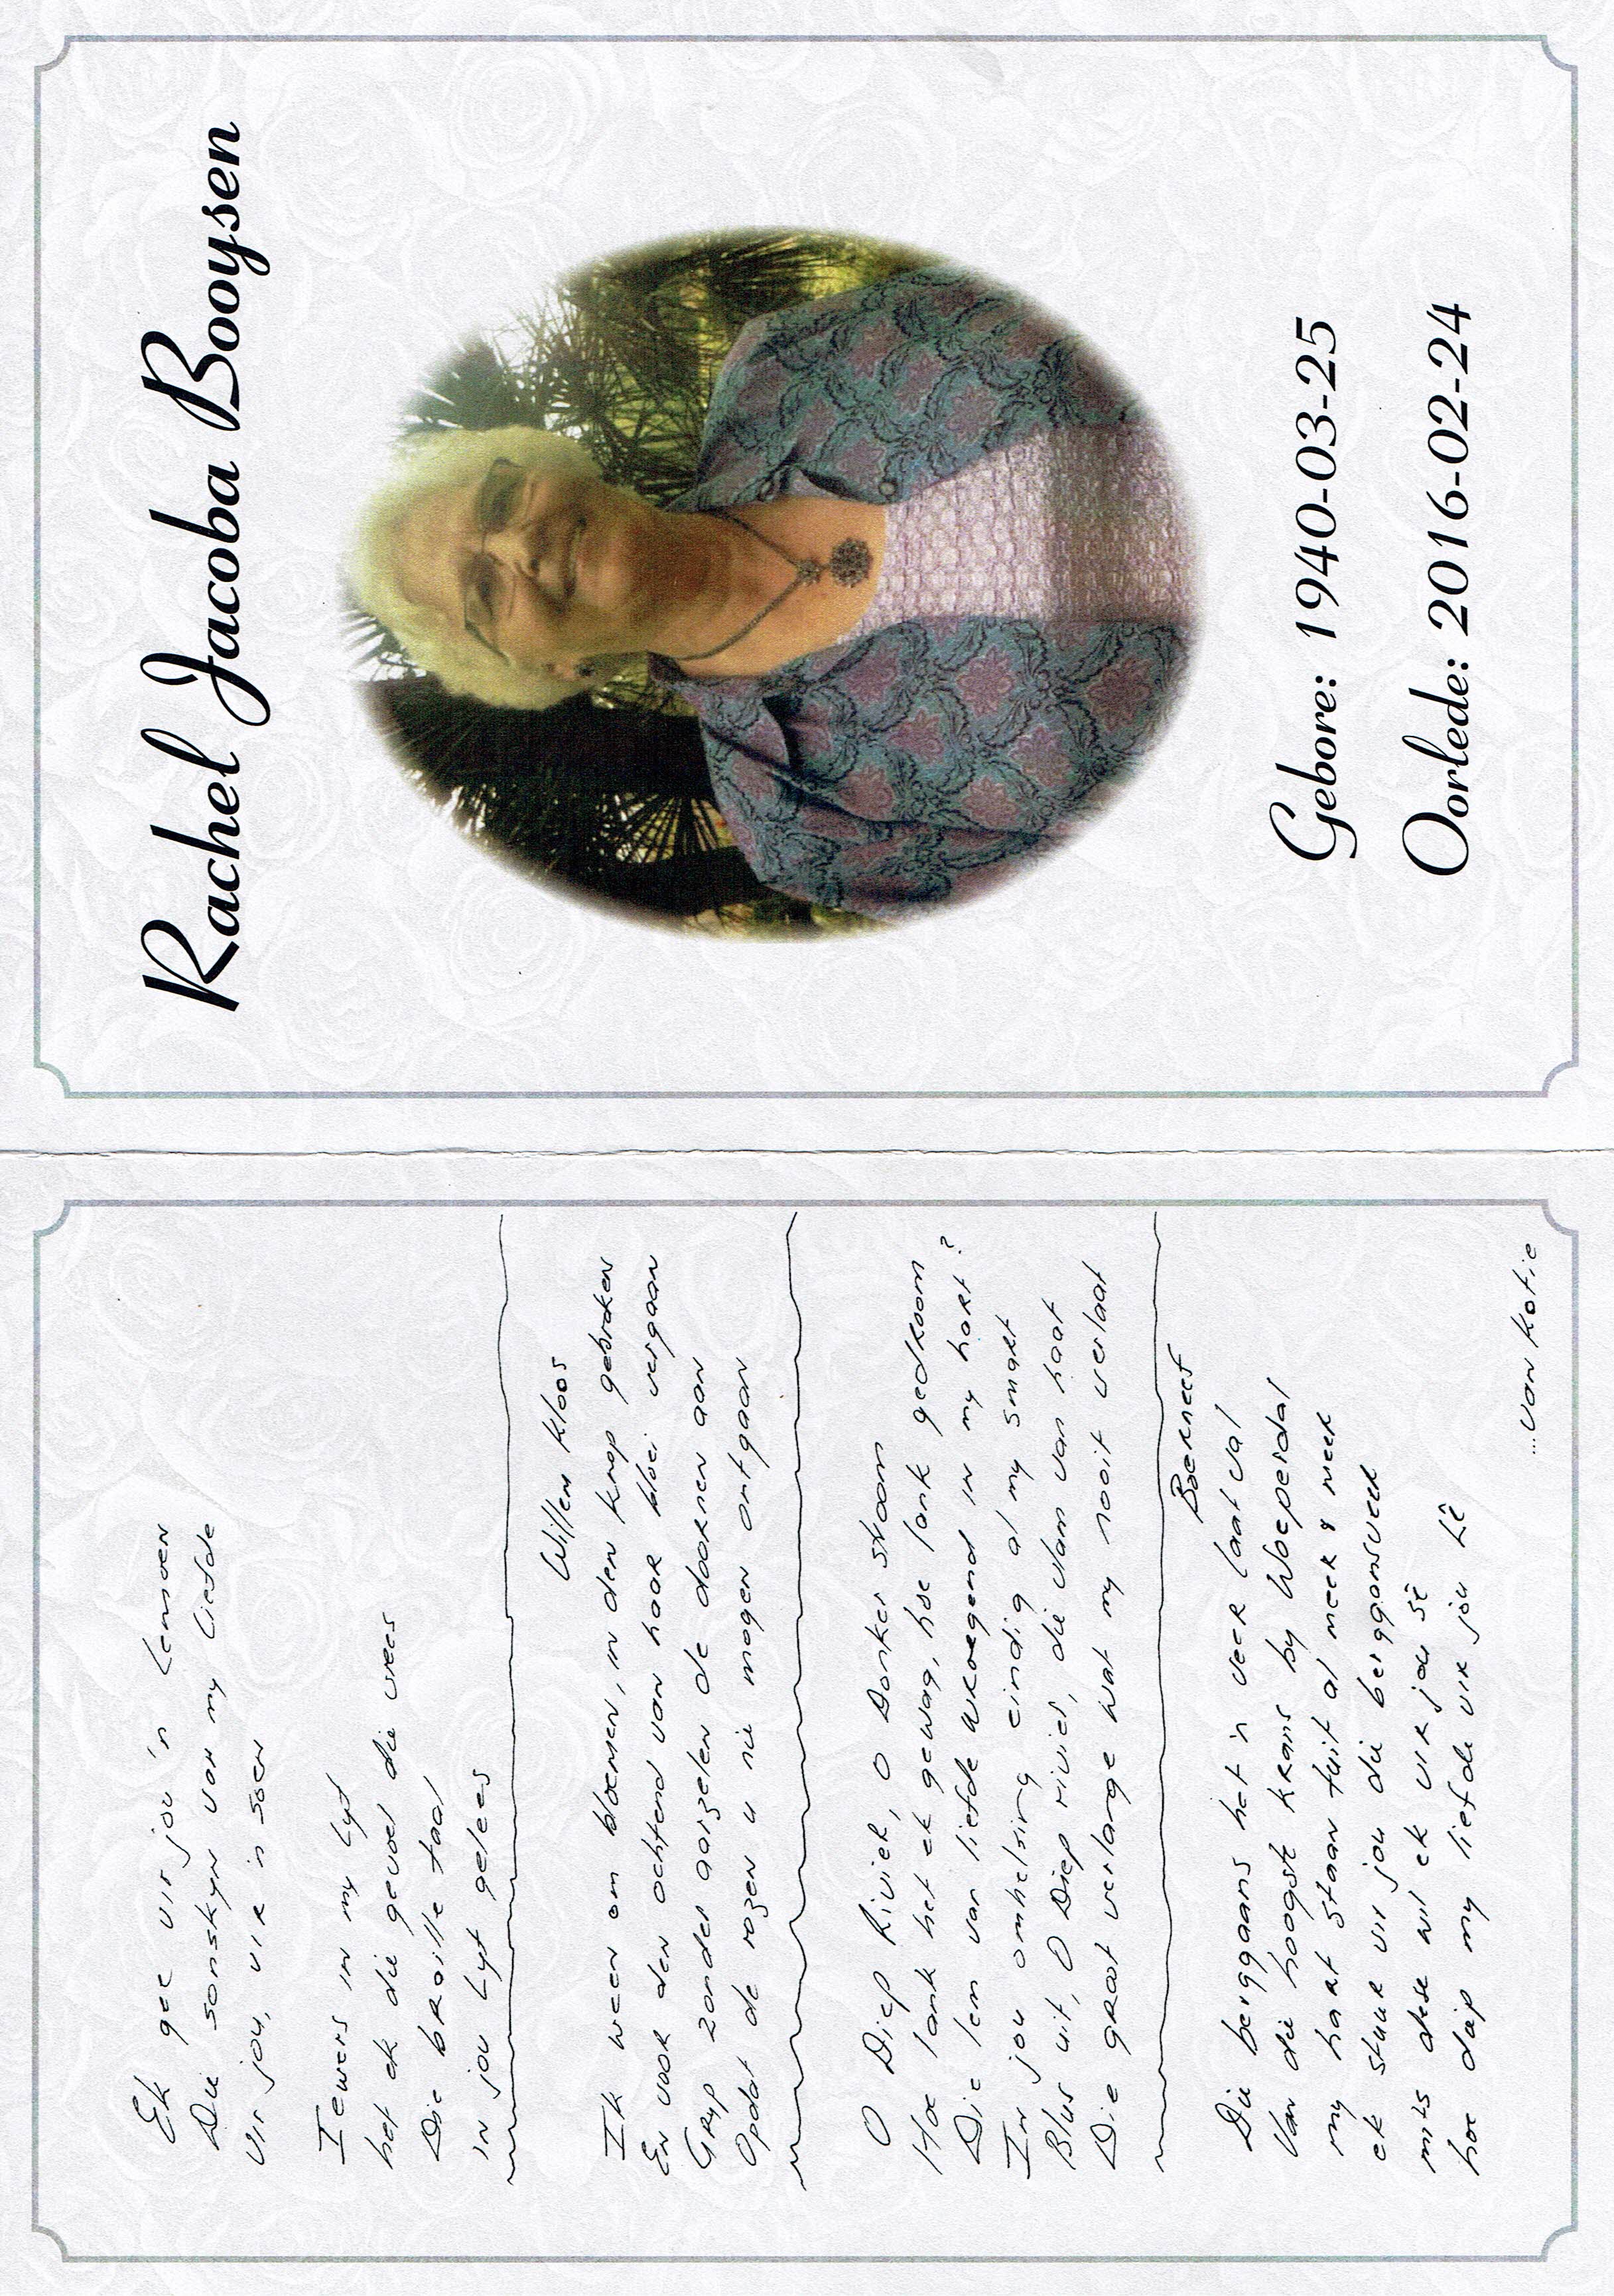 Ek gee vir jou 'n Lemoen
Die sonskyn van my Liefde
Vir jou, vir 'n soen
Iewers in my Lyf
het ek die gevoel die vrees
Die braille taal
in jou Lyf gelees
Willem Kloos
Ik ween om bloemen, in den knop gebroken
En voor den ochtend van haar bloei vergaan
Gryp zonder aarzelen de doornen aan
Opdat de rozen u nie mogen ontgaan
O Diep Rivier, O Donker stroom
Hoe lank het ek gewag, hoe lank gedroom
Die lem van liefde wroegend in my hart?
In jou omhelsing eindig al my smart
Blus uit, O Diep rivier, die vlam van haat
Die groot verlange wat my nooit verlaat
Boerneef
Die berggans het 'n veer laat val
Van die hoogste krans by Woeperdal
my hart staan tuit al meer & meer
ek stuur vir jou die berggansveer
mits dese wil ek vir jou sê
hoe diep my liefde vir jou Lê
...van Kotie
Rachel Jacoba Booysen
Gebore: 1940-03-25
Oorlede: 2016-02-24